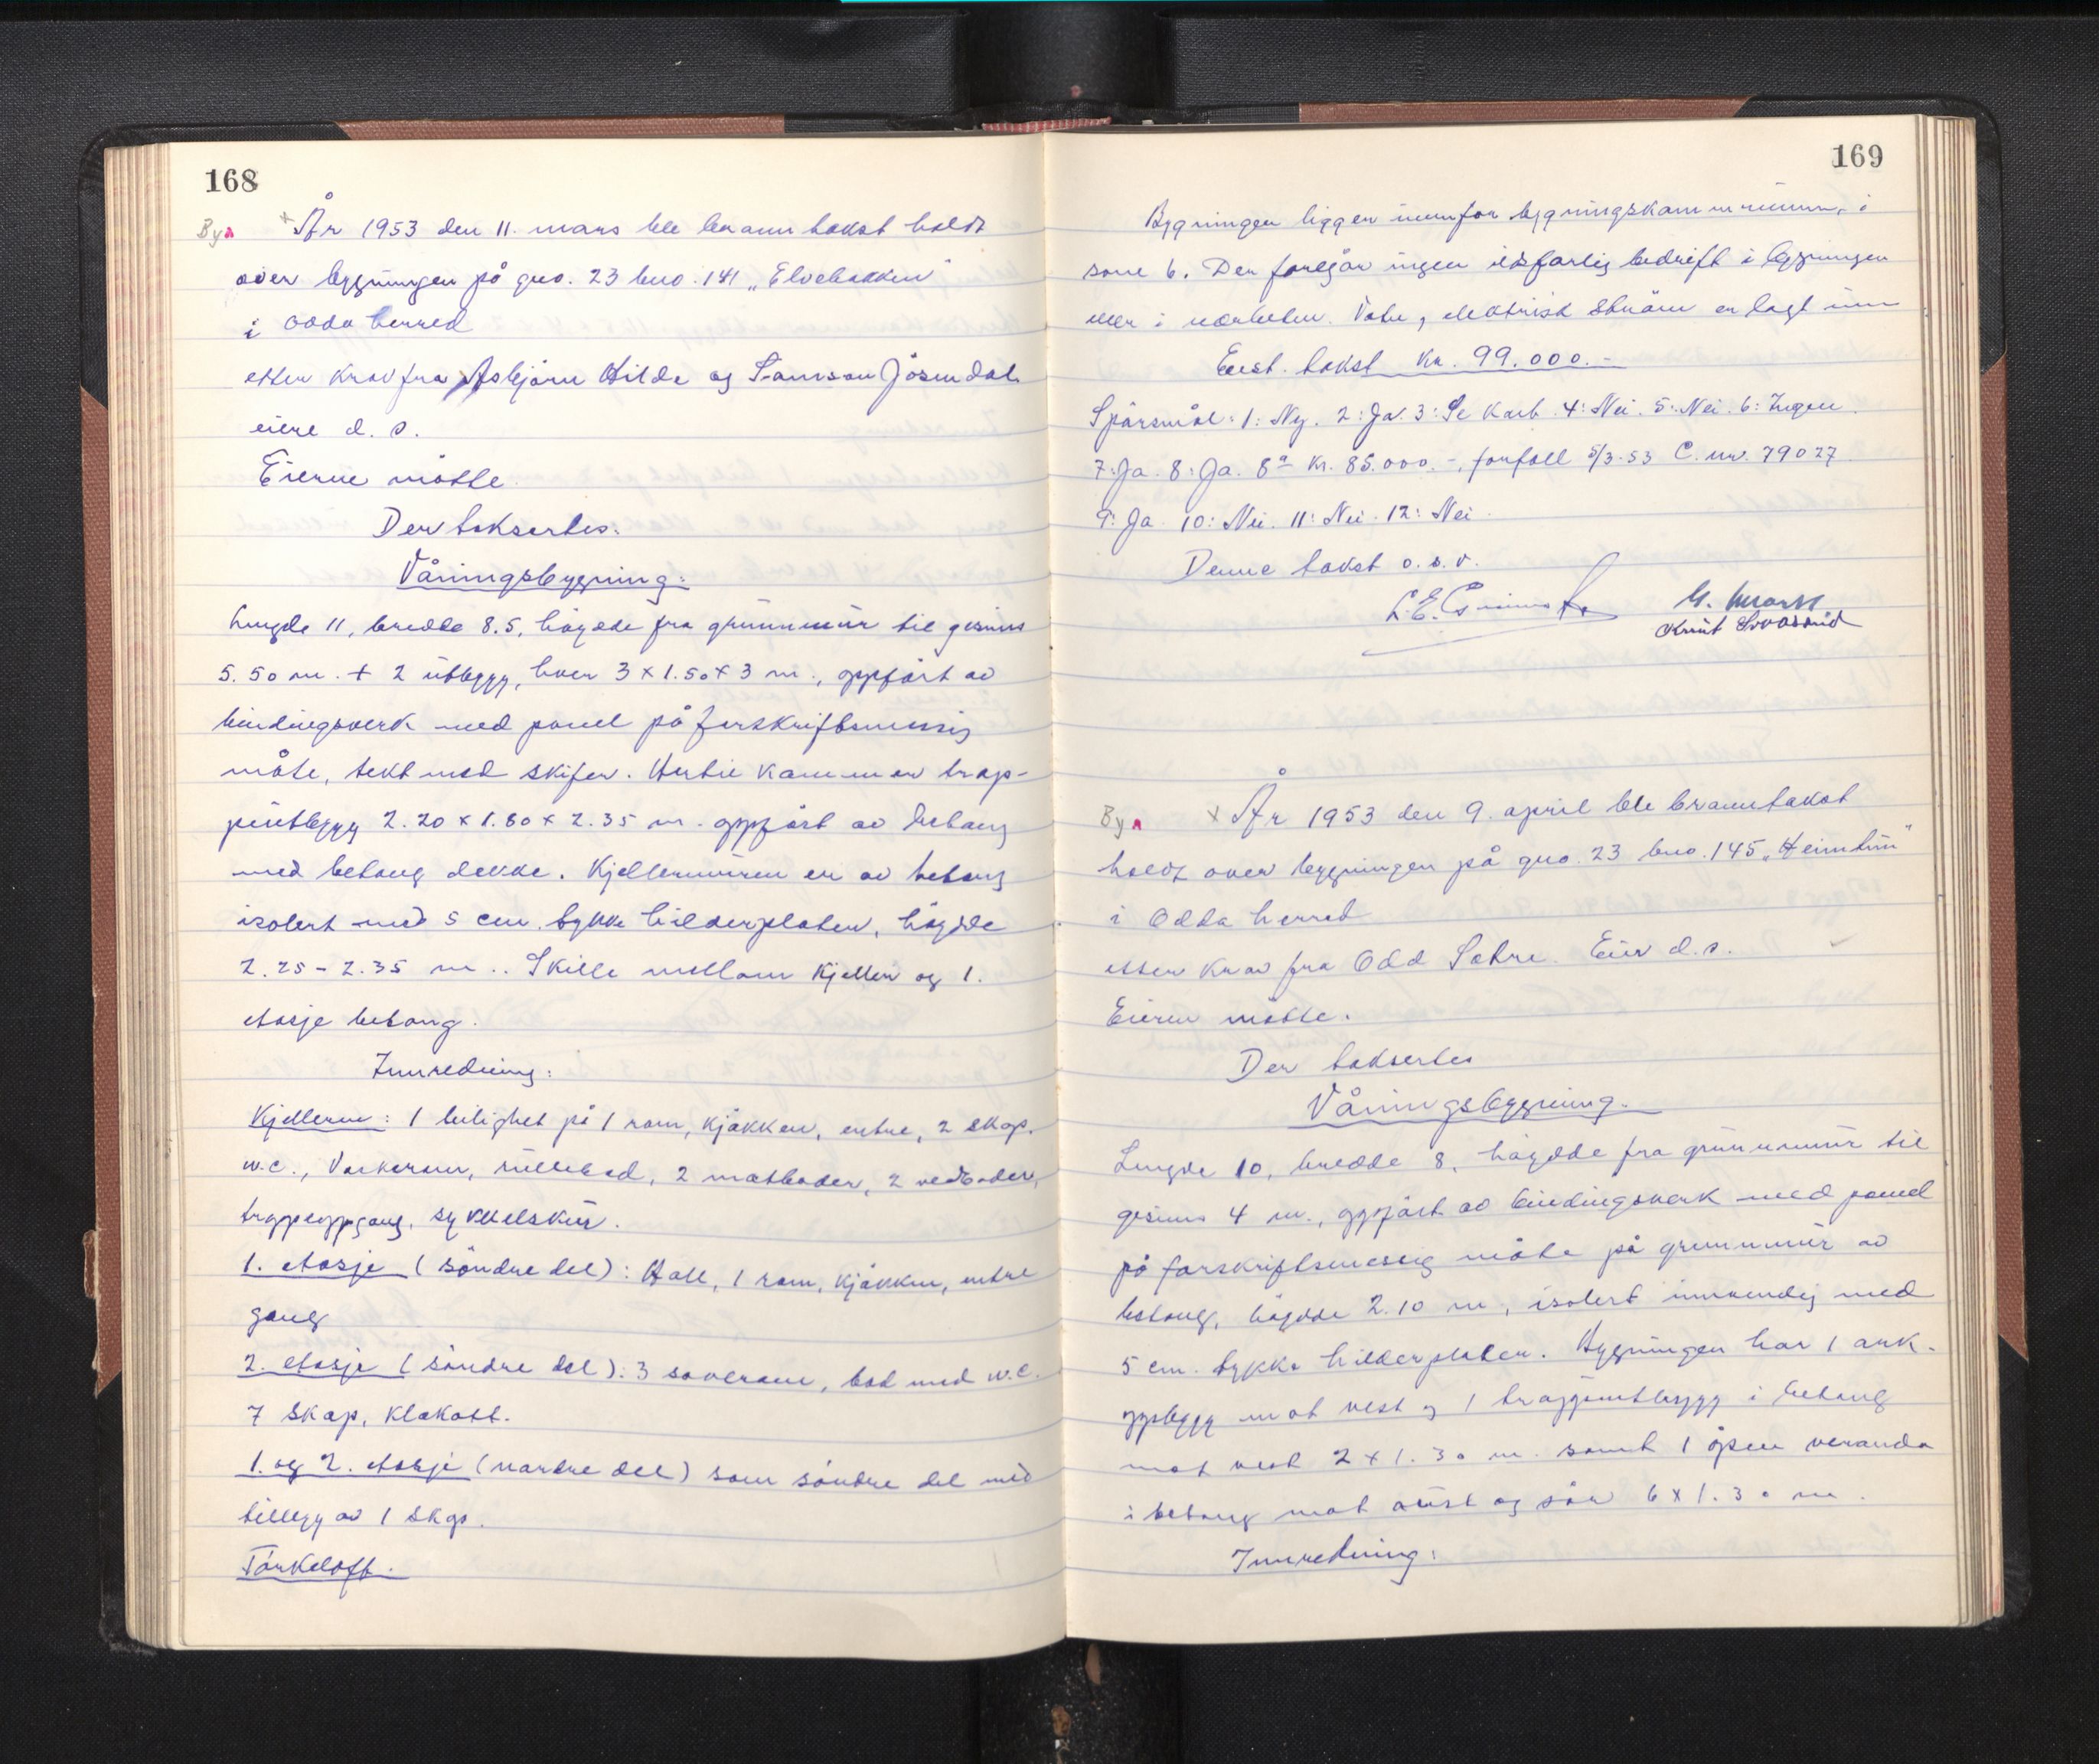 168
By
År 1953 den 11. mars ble branntakst holdt
over bygningen på gno. 23 bno. 141 „Elvebakken"
i Odda herred
etter krav fra Asbjørn Hilde og Samson Jøsendal
eiere d. s.
Eierne møtte.
Der taksertes:
Våningsbygning:
Lengde 11, bredde 8.5, høgde fra grunnmur til gesims
5.50 m. + 2 utbygg, hver 3 x 1.50 x 3 m., oppført av
bindingsverk med panel på forskriftsmessig
måte, tekt med skifer. Hertil kommer trap-
peutbygg 2.20 x 1.80 x 2.35 m. oppført av betong
med betong dekke. Kjellermuren er av betong
isolert med 5 cm. tykke bilderplater, høgde
2.25 - 2.35 m.. Skille mellom kjeller og 1.
etasje betong.
Innredning:
Kjelleren: 1 leilighet på 1 rom, kjøkken, entre, 2 skap.
w.c., Vaskerom, rullebod, 2 matboder, 2 vedboder,
trappeoppgang, sykkelskur.
1. etasje (søndre del): Hall, 1 rom, kjøkken, entre
gang
2. etasje (søndre del): 3 soverom, bad med w.c.
7 skap, klekott.
1. og 2. etasje (nordre del) som søndre del med
tillegg av 1 skap.
Tørkeloft.
169
Bygningen ligger innfor bygningskommunen, i
sone 6. Der foregår ingen ildsfarlig bedrift i bygningen
eller i nærheten. Vatn, elektrisk strøm er lagt inn
Enst. takst kr. 99.000.-
Spørsmål: 1: Ny. 2: Ja. 3: Se kart. 4: Nei. 5: Nei. 6: Ingen.
7: Ja. 8: Ja. 8a kr. 85.000.-, forfall 5/3-53 C. nr. 79027.
9: Ja 10: Nei. 11: Nei. 12: Nei.
Denne takst o.s.v.
Knut
By
År 1953 den 9. april ble branntakst
holdt over bygningen på gno. 23 bno. 145 „Heimtun"
i Odda herred
etter krav fra Odd Sætre. Eier d.s.
Eieren møtte.
Der taksertes
Våningsbygning.
Lengde 10, bredde 8, høgde fra grunnmur til
gesims 4 m., oppført av bindingsverk med panel
på forskriftsmessig måte på grunnmur av
betong, høgde 2.10 m, isolert innvendig med
5 cm. tykke bilderplater. Bygningen har 1 ark-
oppbygg mot vest og 1 trappeutbygg i betong
mot vest 2 x 1.30 m. samt 1 åpen veranda
i betong mot aust og sør 6 x 1.30 m.
Innredning: